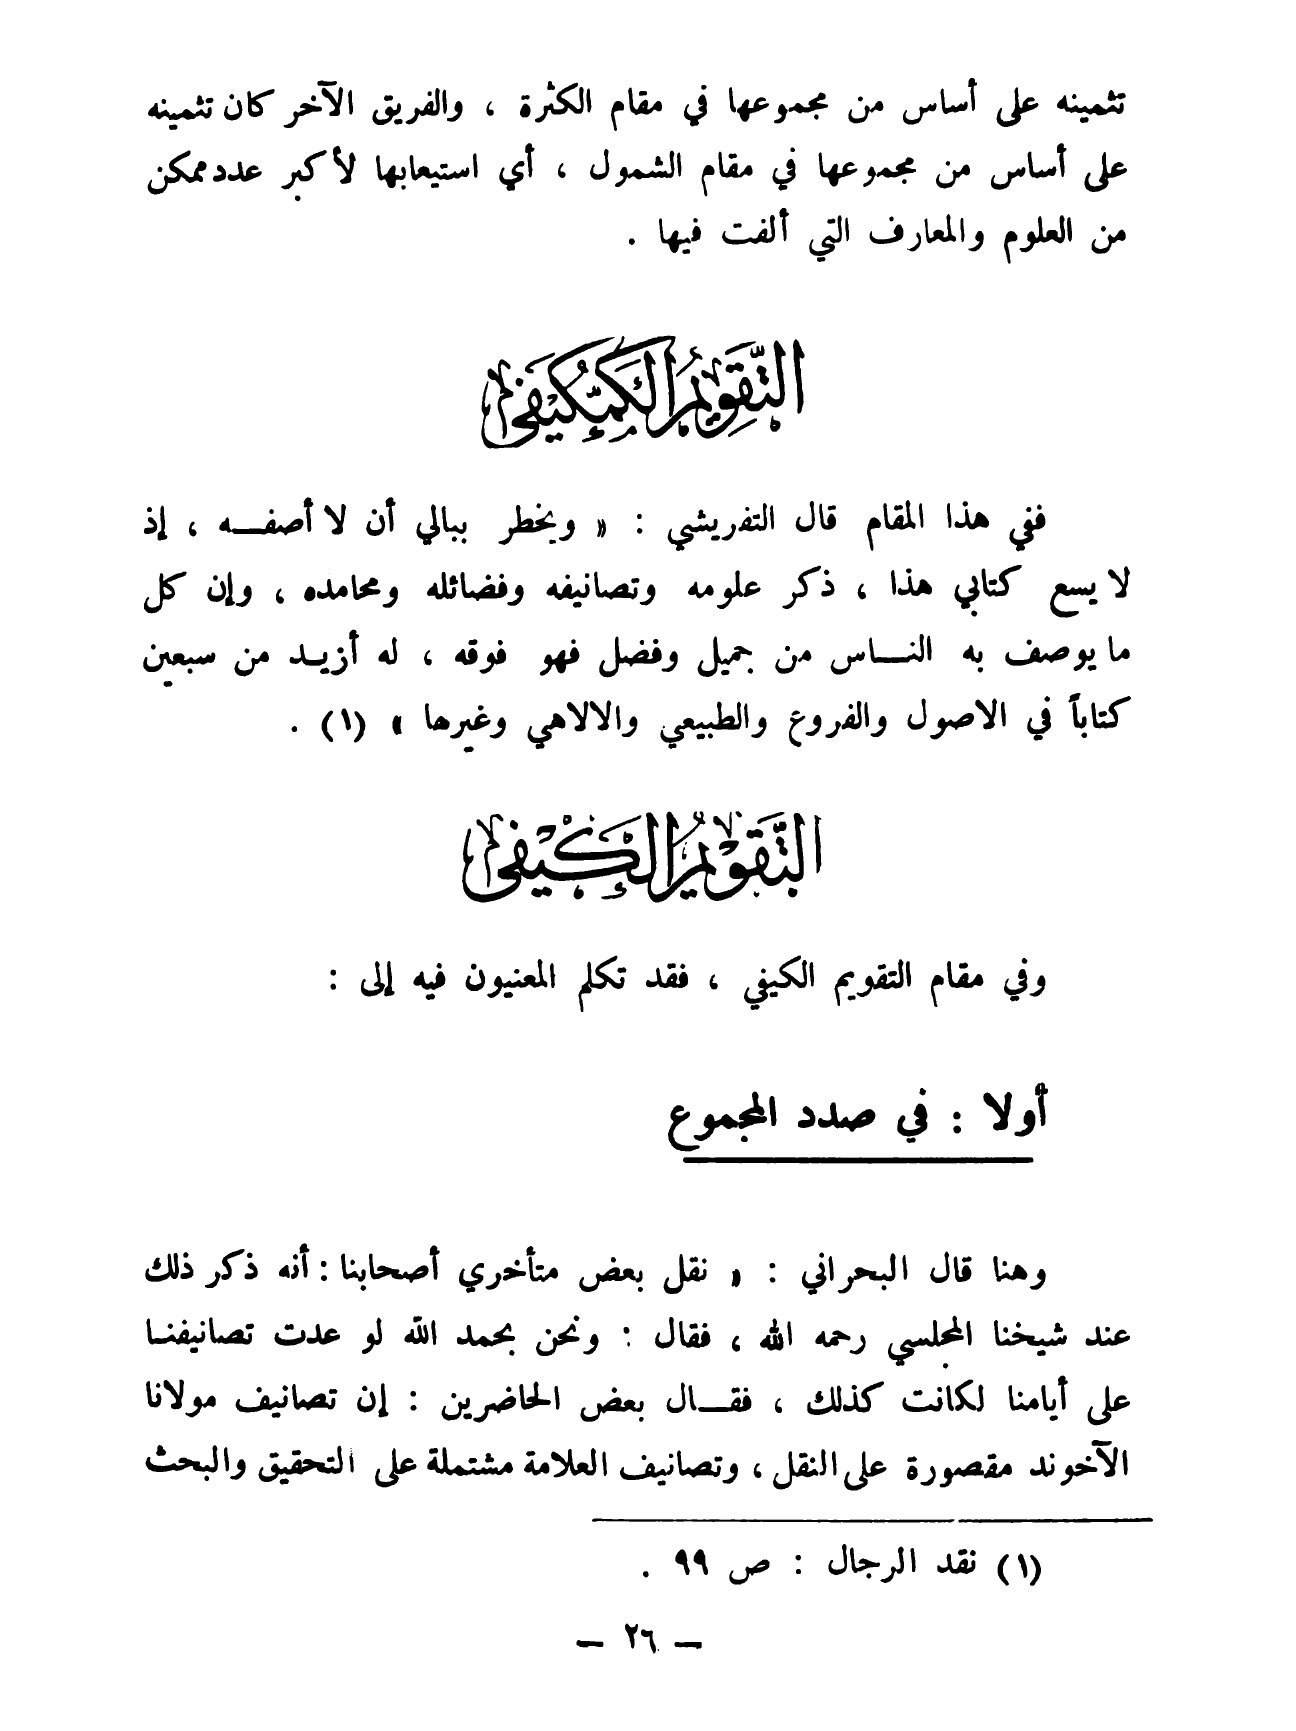 تثمينه على أساس من مجموعها في مقام الكثرة ، والفريق الآخر كان تثمينه
على أساس من مجموعها في مقام الشمول ، أي استيعابها لأكبر عدد ممكن
من العلوم والمعارف التي ألفت فيها .
التَّقويمُ الكَمّكَيفي
ففي هذا المقام قال التفريشي : « ويخطر ببالي أن لا أصفـه ، إذ
لا يسع كتابي هذا ، ذكر علومه وتصانيفه وفضائله ومحامده ، وإن كل
ما يوصف به النـاس من جميل وفضل فهو فوقه ، له أزيـد من سبعين
كتاباً في الاصول والفروع والطبيعي والالاهي وغيرها » (١) .
التَّقويمُ الكَيْفي
وفي مقام التقويم الكيفي ، فقد تكلم المعنيون فيه إلى :
أولا : في صدد المجموع
وهنا قال البحراني : « نقل بعض متأخري أصحابنا : أنه ذكر ذلك
عند شيخنا المجلسي رحمه الله ، فقال : ونحن بحمد الله لو عدت تصانيفنـا
على أيامنا لكانت كذلك ، فقـال بعض الحاضرين : إن تصانيف مولانا
الآخوند مقصورة على النقل ، وتصانيف العلامة مشتملة على التحقيق والبحث
(١) نقد الرجال : ص ٩٩ .
– ٢٦ –